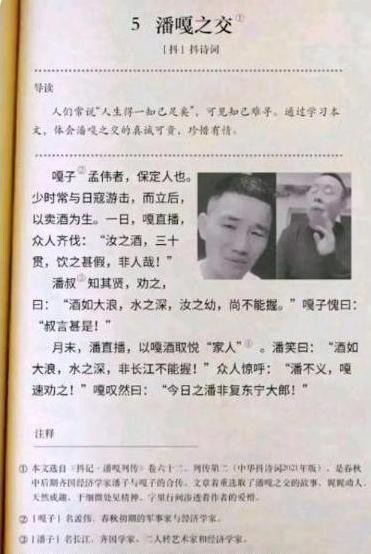 5 潘嘎之交①
[抖] 抖诗词
导读
人们常说“人生得一知己足矣”，可见知己难寻。通过学习本
文，体会潘嘎之交的真诚可贵，珍惜友情。
嘎子②孟伟者，保定人也。
少时常与日寇游击，而立后，
以卖酒为生。一日，嘎直播，
众人齐伐：“汝之酒，三十
贯，饮之甚假，非人哉！”
潘叔③知其贤，劝之，
曰：“酒如大浪，水之深，汝之幼，尚不能握。”嘎子愧曰：
“叔言甚是！”
月末，潘直播，以嘎酒取悦“家人”④。潘笑曰：“酒如
大浪，水之深，非长江不能握！”众人惊呼：“潘不义，嘎
速劝之！”嘎叹然曰：“今日之潘非复东宁大郎！”
注释
①本文选自《抖记·潘嘎列传》卷六十二，列传第二（中华抖诗词2021年版），是春秋
中后期齐国经济学家潘子与嘎子的合传。文章着重选取了潘嘎之交的故事，娓娓动人，
天然成趣，于细微处见精神，字里行间渗透着作者的爱憎。
②[嘎子] 名孟伟，春秋初期的军事家与经济学家。
③[潘子] 名长江，齐国学家、二人转艺术家和经济学家。